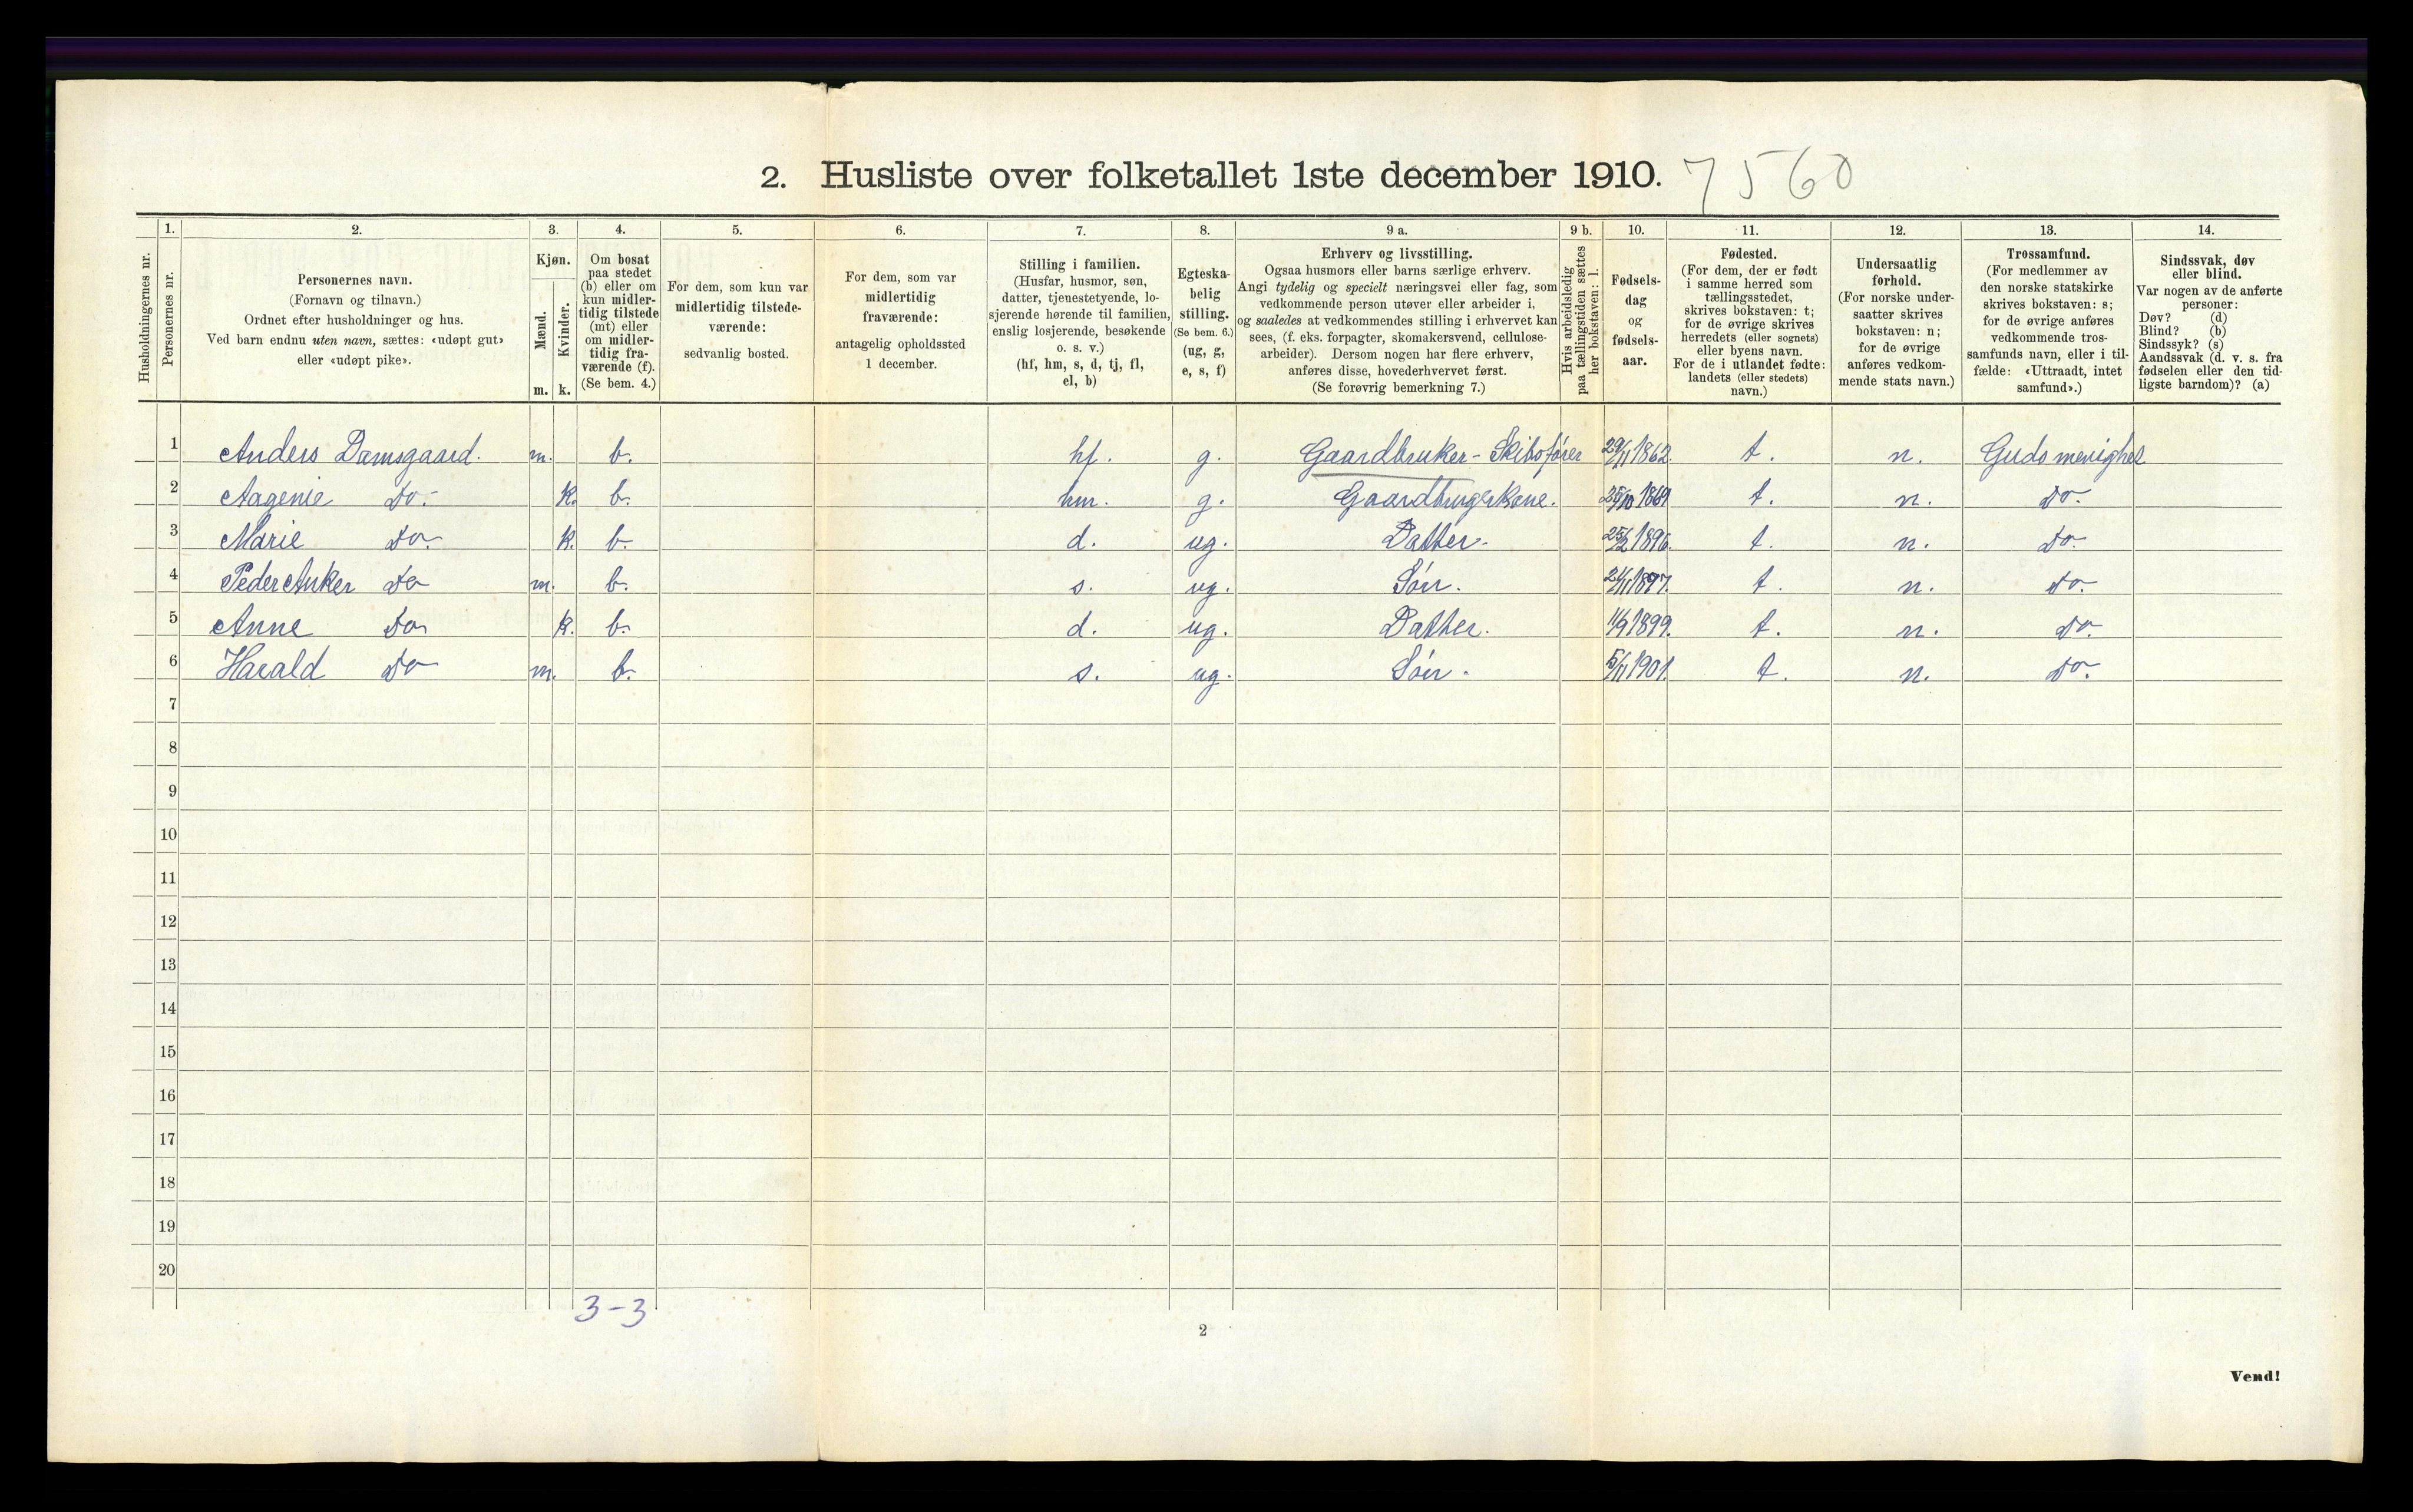 2. Husliste over folketallet 1ste december 1910. 7560
Husholdningernes nr.
1. Personernes nr.
2. Personernes navn.
(Fornavn og tilnavn.)
Ordnet efter husholdninger og hus.
Ved barn endnu uten navn, sættes: «udøpt gut»
eller «udøpt pike».
3. Kjøn.
Mænd. m.
Kvinder. k.
4. Om bosat
paa stedet
(b) eller om
kun midler-
tidig tilstede
(mt) eller
om midler-
tidig fra-
værende (f).
(Se bem. 4.)
5. For dem, som kun var
midlertidig tilstede-
værende:
sedvanlig bosted.
6. For dem, som var
midlertidig
fraværende:
antagelig opholdssted
1 december.
7. Stilling i familien.
(Husfar, husmor, søn,
datter, tjenestetyende, lo-
sjerende hørende til familien,
enslig losjerende, besøkende
o. s. v.)
(hf, hm, s, d, tj, fl,
el, b)
8. Egteska-
belig
stilling.
(Se bem. 6.)
(ug, g,
e, s, f)
9 a. Erhverv og livsstilling.
Ogsaa husmors eller barns særlige erhverv.
Angi tydelig og specielt næringsvei eller fag, som
vedkommende person utøver eller arbeider i,
og saaledes at vedkommendes stilling i erhvervet kan
sees, (f. eks. forpagter, skomakersvend, cellulose-
arbeider). Dersom nogen har flere erhverv,
anføres disse, hovederhvervet først.
(Se forøvrig bemerkning 7.)
9 b. Hvis arbeidsledig
paa tællingstiden sættes
her bokstaven: l.
10. Fødsels-
dag
og
fødsels-
aar.
11. Fødested.
(For dem, der er født
i samme herred som
tællingsstedet,
skrives bokstaven: t;
for de øvrige skrives
herredets (eller sognets)
eller byens navn.
For de i utlandet fødte:
landets (eller stedets)
navn.)
12. Undersaatlig
forhold.
(For norske under-
saatter skrives
bokstaven: n;
for de øvrige
anføres vedkom-
mende stats navn.)
13. Trossamfund.
(For medlemmer av
den norske statskirke
skrives bokstaven: s;
for de øvrige anføres
vedkommende tros-
samfunds navn, eller i til-
fælde: «Uttraadt, intet
samfund».)
14. Sindssvak, døv
eller blind.
Var nogen av de anførte
personer:
Døv? (d)
Blind? (b)
Sindssyk? (s)
Aandssvak (d. v. s. fra
fødselen eller den tid-
ligste barndom)? (a)
1 Anders Damsgaard. m. b. hf. g. Gaardbruker - Skibsfører 29/11 1862. t. n. Guds menighet
2 Aagenie Do. k. b. hm. g. 25/10 1869 t. n. Do.
3 Marie Do. k. b. d. ug. Datter. 1896. t. n. Do.
4 Peder Anker Do m. b. s. ug. Sön. 1897. t. n. Do.
5 Anne Do k. b. d. ug. Datter. 11/9 1899. t. n. Do.
6 Harald Do m. b. s. ug. Sön. 5/11 1901. t. n. Do.
7
8
9
10
11
12
13
14
15
16
17
18
19
20
3-3
2
Vend!